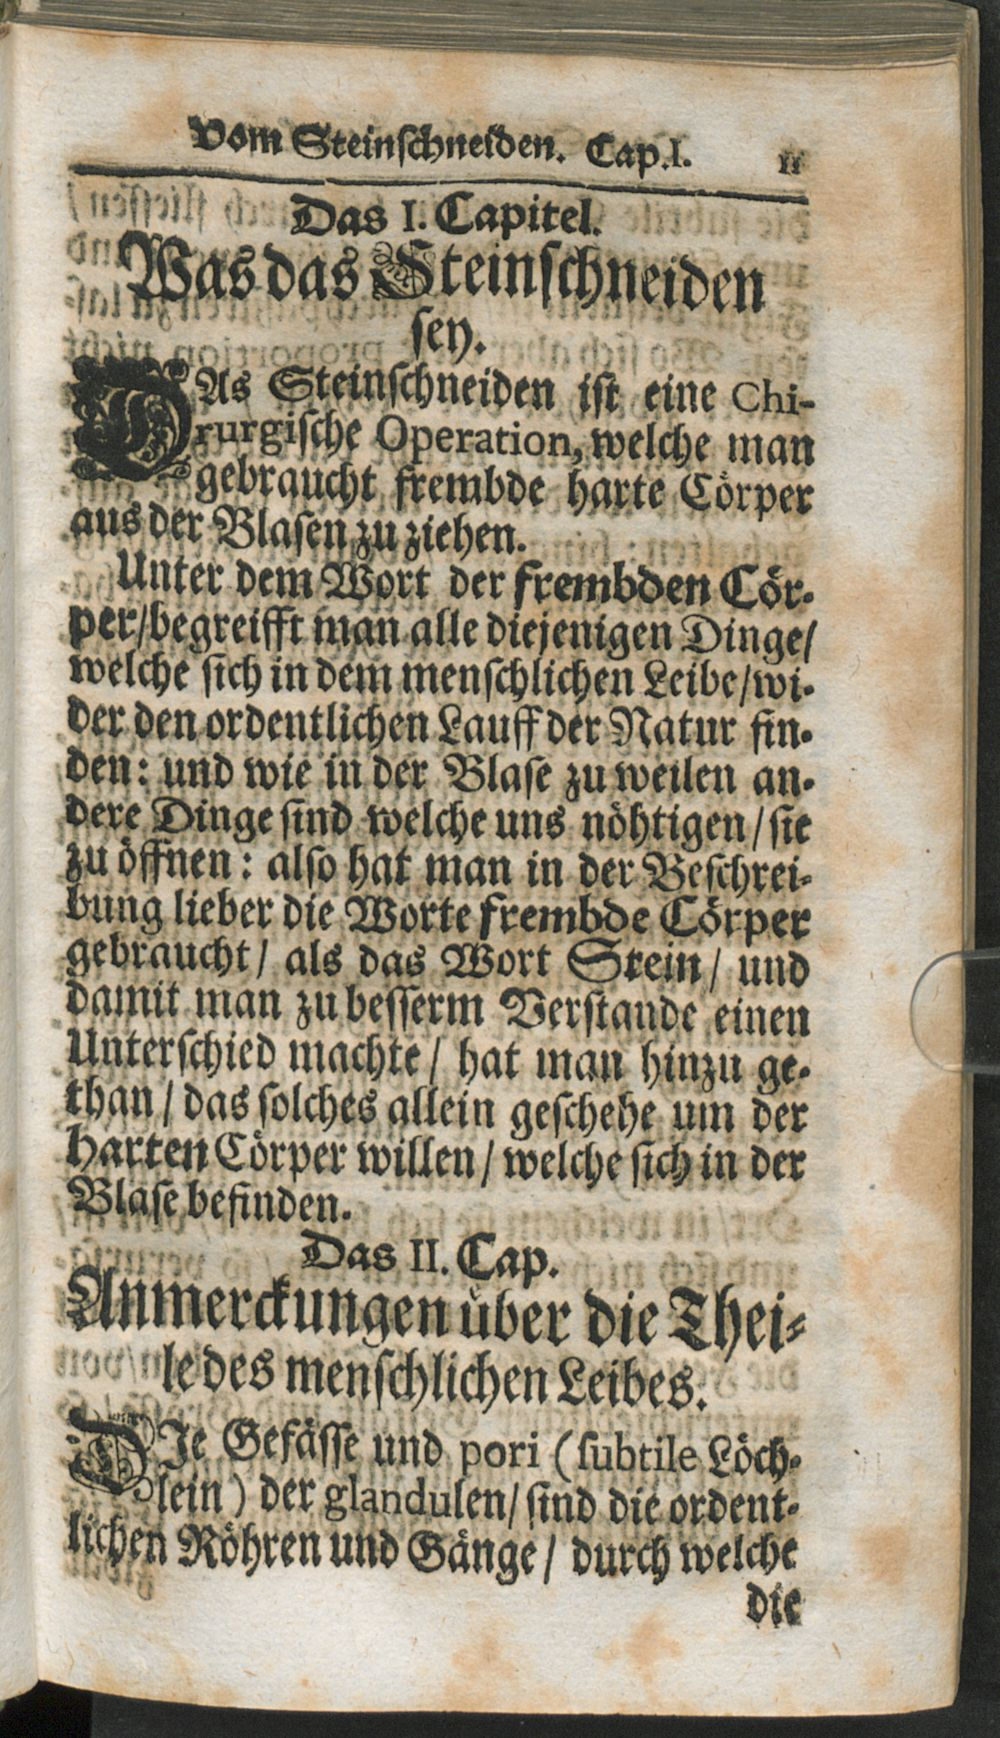 Vom Steinschneiden. Cap.I. 11
Das I. Capitel.
Was das Steinschneiden
sey.
DAs Steinschneiden ist eine Chi-
rurgische Operation, welche man
gebraucht frembde harte Cörper
aus der Blasen zu ziehen.
Unter dem Wort der frembden Cör-
per/begreifft man alle diejenigen Dinge/
welche sich in dem menschlichen Leibe/wi-
der den ordentlichen Lauff der Natur fin-
den: und wie in der Blase zu weilen an-
dere Dinge sind welche uns nöhtigen/sie
zu öffnen: also hat man in der Beschrei-
bung lieber die Worte frembde Cörper
gebraucht/ als das Wort Stein/ und
damit man zu besserm Verstande einen
Unterschied machte/ hat man hinzu ge-
than/das solches allein geschehe um der
harten Cörper willen/welche sich in der
Blase befinden.
Das II. Cap.
Anmerckungen über die Thei-
le des menschlichen Leibes.
DIe Gefässe und pori (subtile Löch-
lein) der glandulen/sind die ordent-
lichen Röhren und Gänge/ durch welche
die